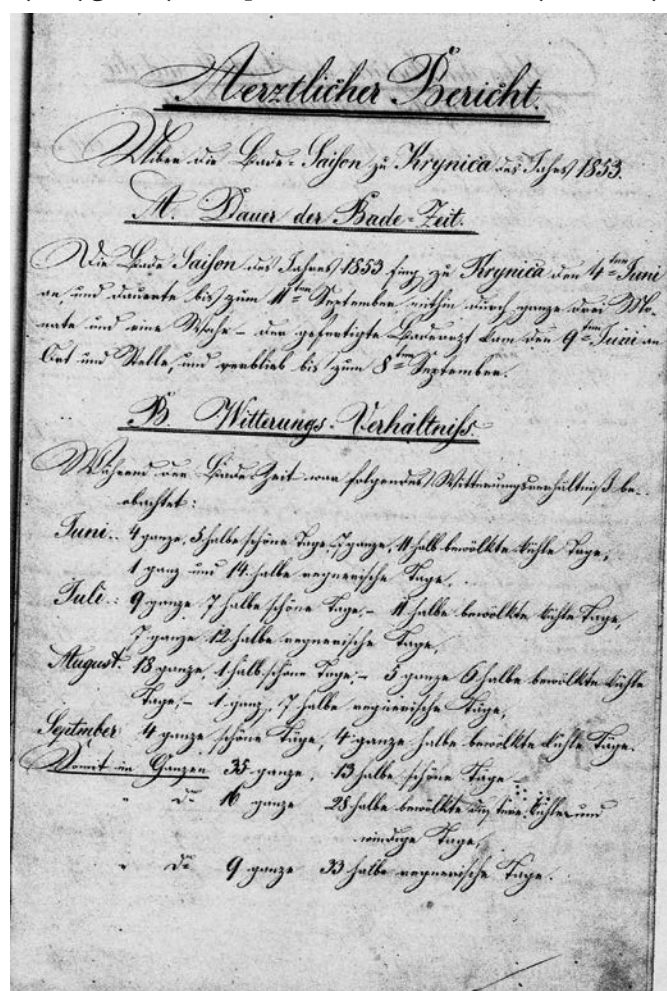 Aerztlicher Bericht.
Über die Bade-Saison zu Krynica des Jahres 1853.
A. Dauer der Bade-Zeit.
Die Bade Saison des Jahres 1853 fing zu Krynica den 4ten Juni
an, und dauerte bis zum 11ten September mithin durch ganze drei Mo-
nate und eine Woche – der gefertigte Badearzt kam den 9ten Juni an
Ort und Stelle, und verblieb bis zum 8ten September.
B. Witterungs-Verhältniss.
Während der Bade-Zeit war folgendes Witterungsverhältniß be-
obachtet:
Juni.. 4 ganze, 5 halbe schöne Tage, 7 ganze, 11 halb bewölkte kühle Tage,
1 ganz und 14 halbe regnerische Tage,
Juli.: 9 ganze 7 halbe schöne Tage, – 11 halbe bewölkte kühle Tage,
7 ganze 12 halbe regnerische Tage,
August: 18 ganze, 1 halb schöne Tage, – 5 ganze 6 halbe bewölkte kühle
Tage, – 1 ganz, 7 halbe regnerische Tage,
September 4 ganze schöne Tage, 4 ganze halbe bewölkte kühle Tage.
Somit im Ganzen 35 ganze, 13 halbe schöne Tage
" do 16 ganze 28 halbe bewölkte kühle und
windige Tage,
" do 9 ganze 33 halbe regnerische Tage.